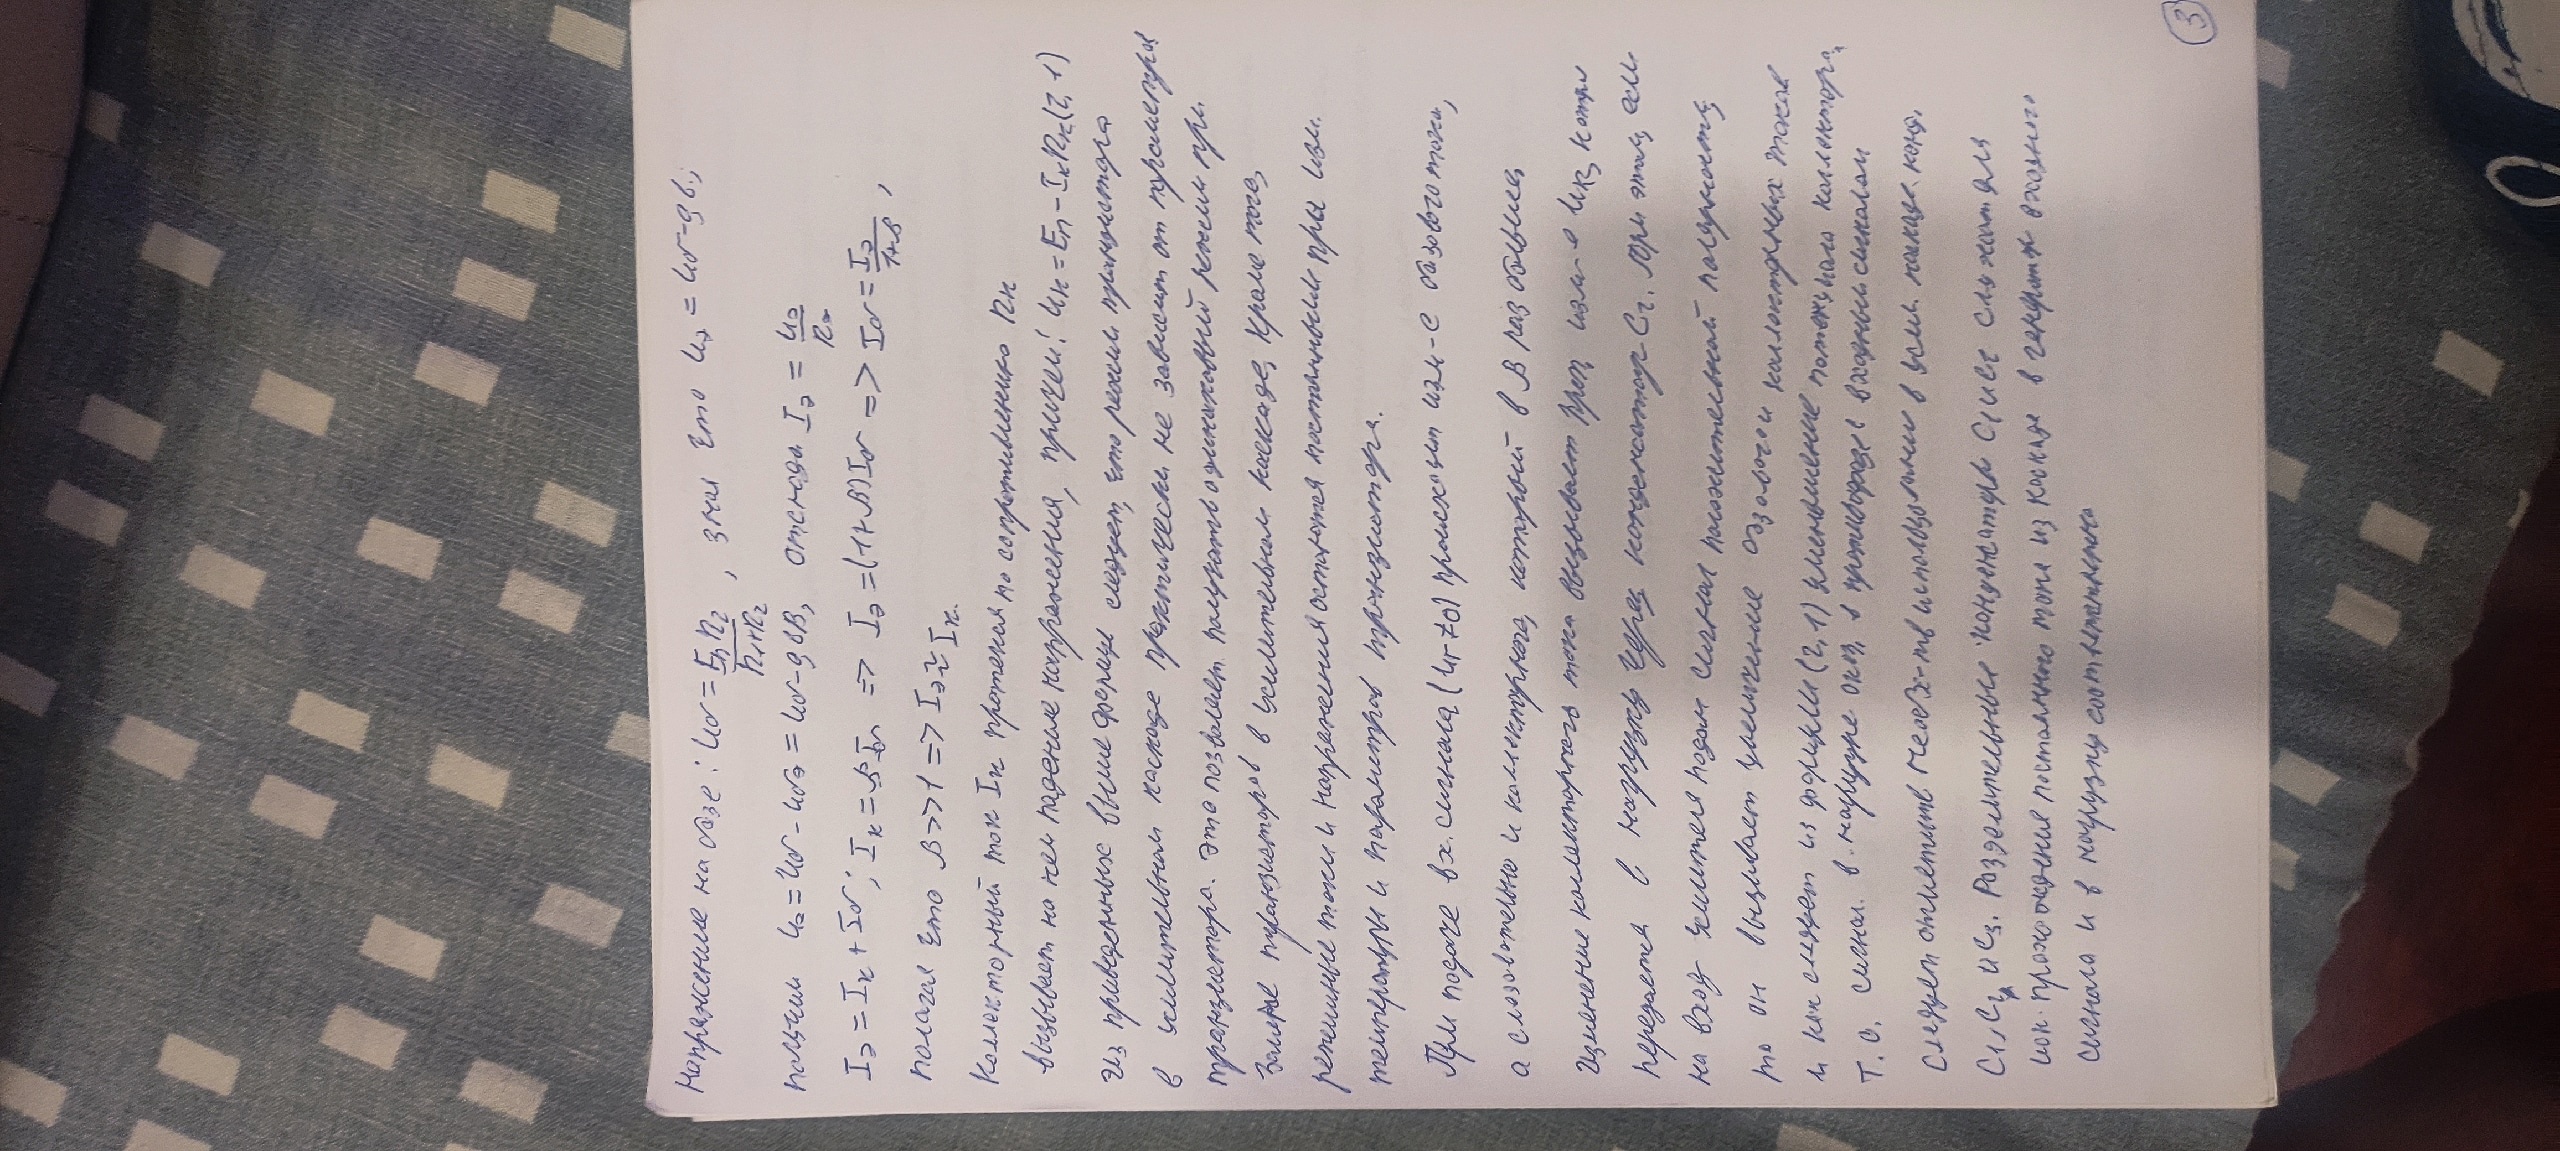 3
Напряжение на базе: Uб = EпR2/R1+R2, зная что Uэ = Uб-Uбэ.,
получим Uэ = Uб - Uбэ = Uб - Uбэ, отсюда Iэ = Uэ/Rэ
Iэ = Iк + Iб; Iк = βIб => Iэ = (1+β)Iб => Iб = Iэ/1+β,
полагая что β>>1 => Iэ ≈ Iк.
Коллекторный ток Iк протекая по сопротивлению Rк
вызывает на нем падение напряжения, причем: Uк = Eп - IкRк (2,1)
Из приведенных выше формул следует, что режим транзистора
в усилительном каскаде практически не зависит от параметров
транзистора. Это позволяет получать одинаковый режим при
замене транзисторов в усилительном каскаде, кроме того,
режимные токи и напряжения остаются постоянными при изм.
температуры и параметров транзистора.
При подаче вх. сигнала (Uг≠0) происходит изм-е базового тока,
а следовательно и коллекторного, который в β раз больше,
Изменение коллекторного тока вызывает изм-е Uк,
передается в нагрузку через конденсатор C2. При этом, если
на вход усилителя подан сигнал положительной полярности,
то он вызывает увеличение базового и коллекторных токов
и как следует из формулы (2,1) уменьшение потенциала коллектора,
т.е. сигнал в нагрузке в противофазе с входным сигналом
Следует отметить использование в усил. каскаде конд.
C1, C2 и C3. Разделительные конденсаторы C1 и C2 служат для
иск. прохождения постоянного тока из каскада в генератор входного
сигнала и в нагрузку соответственно